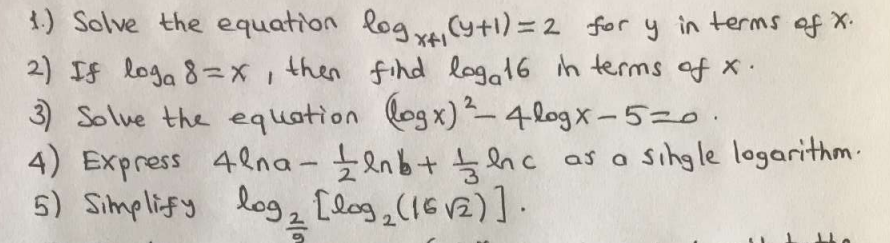 1.) Solve the equation log_{x+1}(y+1) = 2 for y in terms of x.
2) If log_a 8 = x, then find log_a 16 in terms of x.
3) Solve the equation (log x)² - 4 log x - 5 = 0.
4) Express 4 ln a - 1/2 ln b + 1/3 ln c as a single logarithm.
5) Simplify log_{2/9} [log_2 (16√2)].